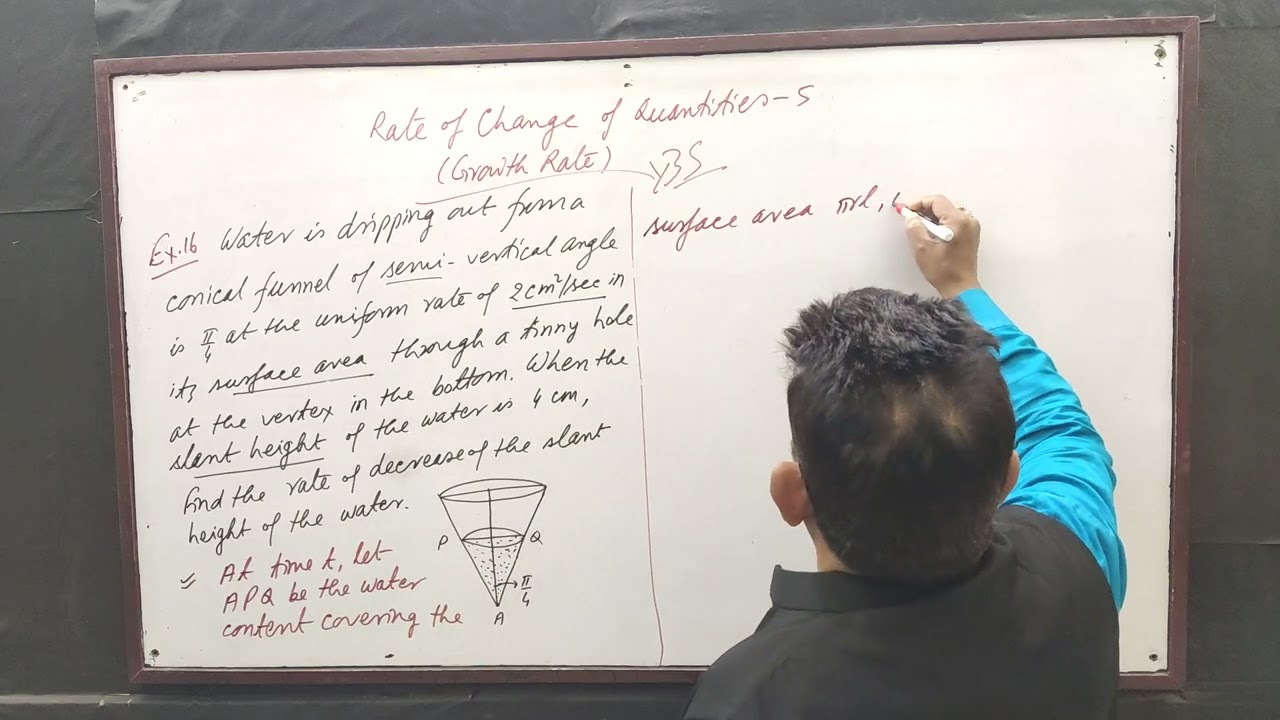 Rate of Change of Quantities-5
(Growth Rate)
Ex.16 Water is dripping out from a
conical funnel of semi-vertical angle
is π/4 at the uniform rate of 2cm²/sec in
its surface area through a tinny hole
at the vertex in the bottom. When the
slant height of the water is 4 cm,
find the rate of decrease of the slant
height of the water.
At time t, let
APQ be the water
content covering the
P
Q
π/4
A
surface area πrl,